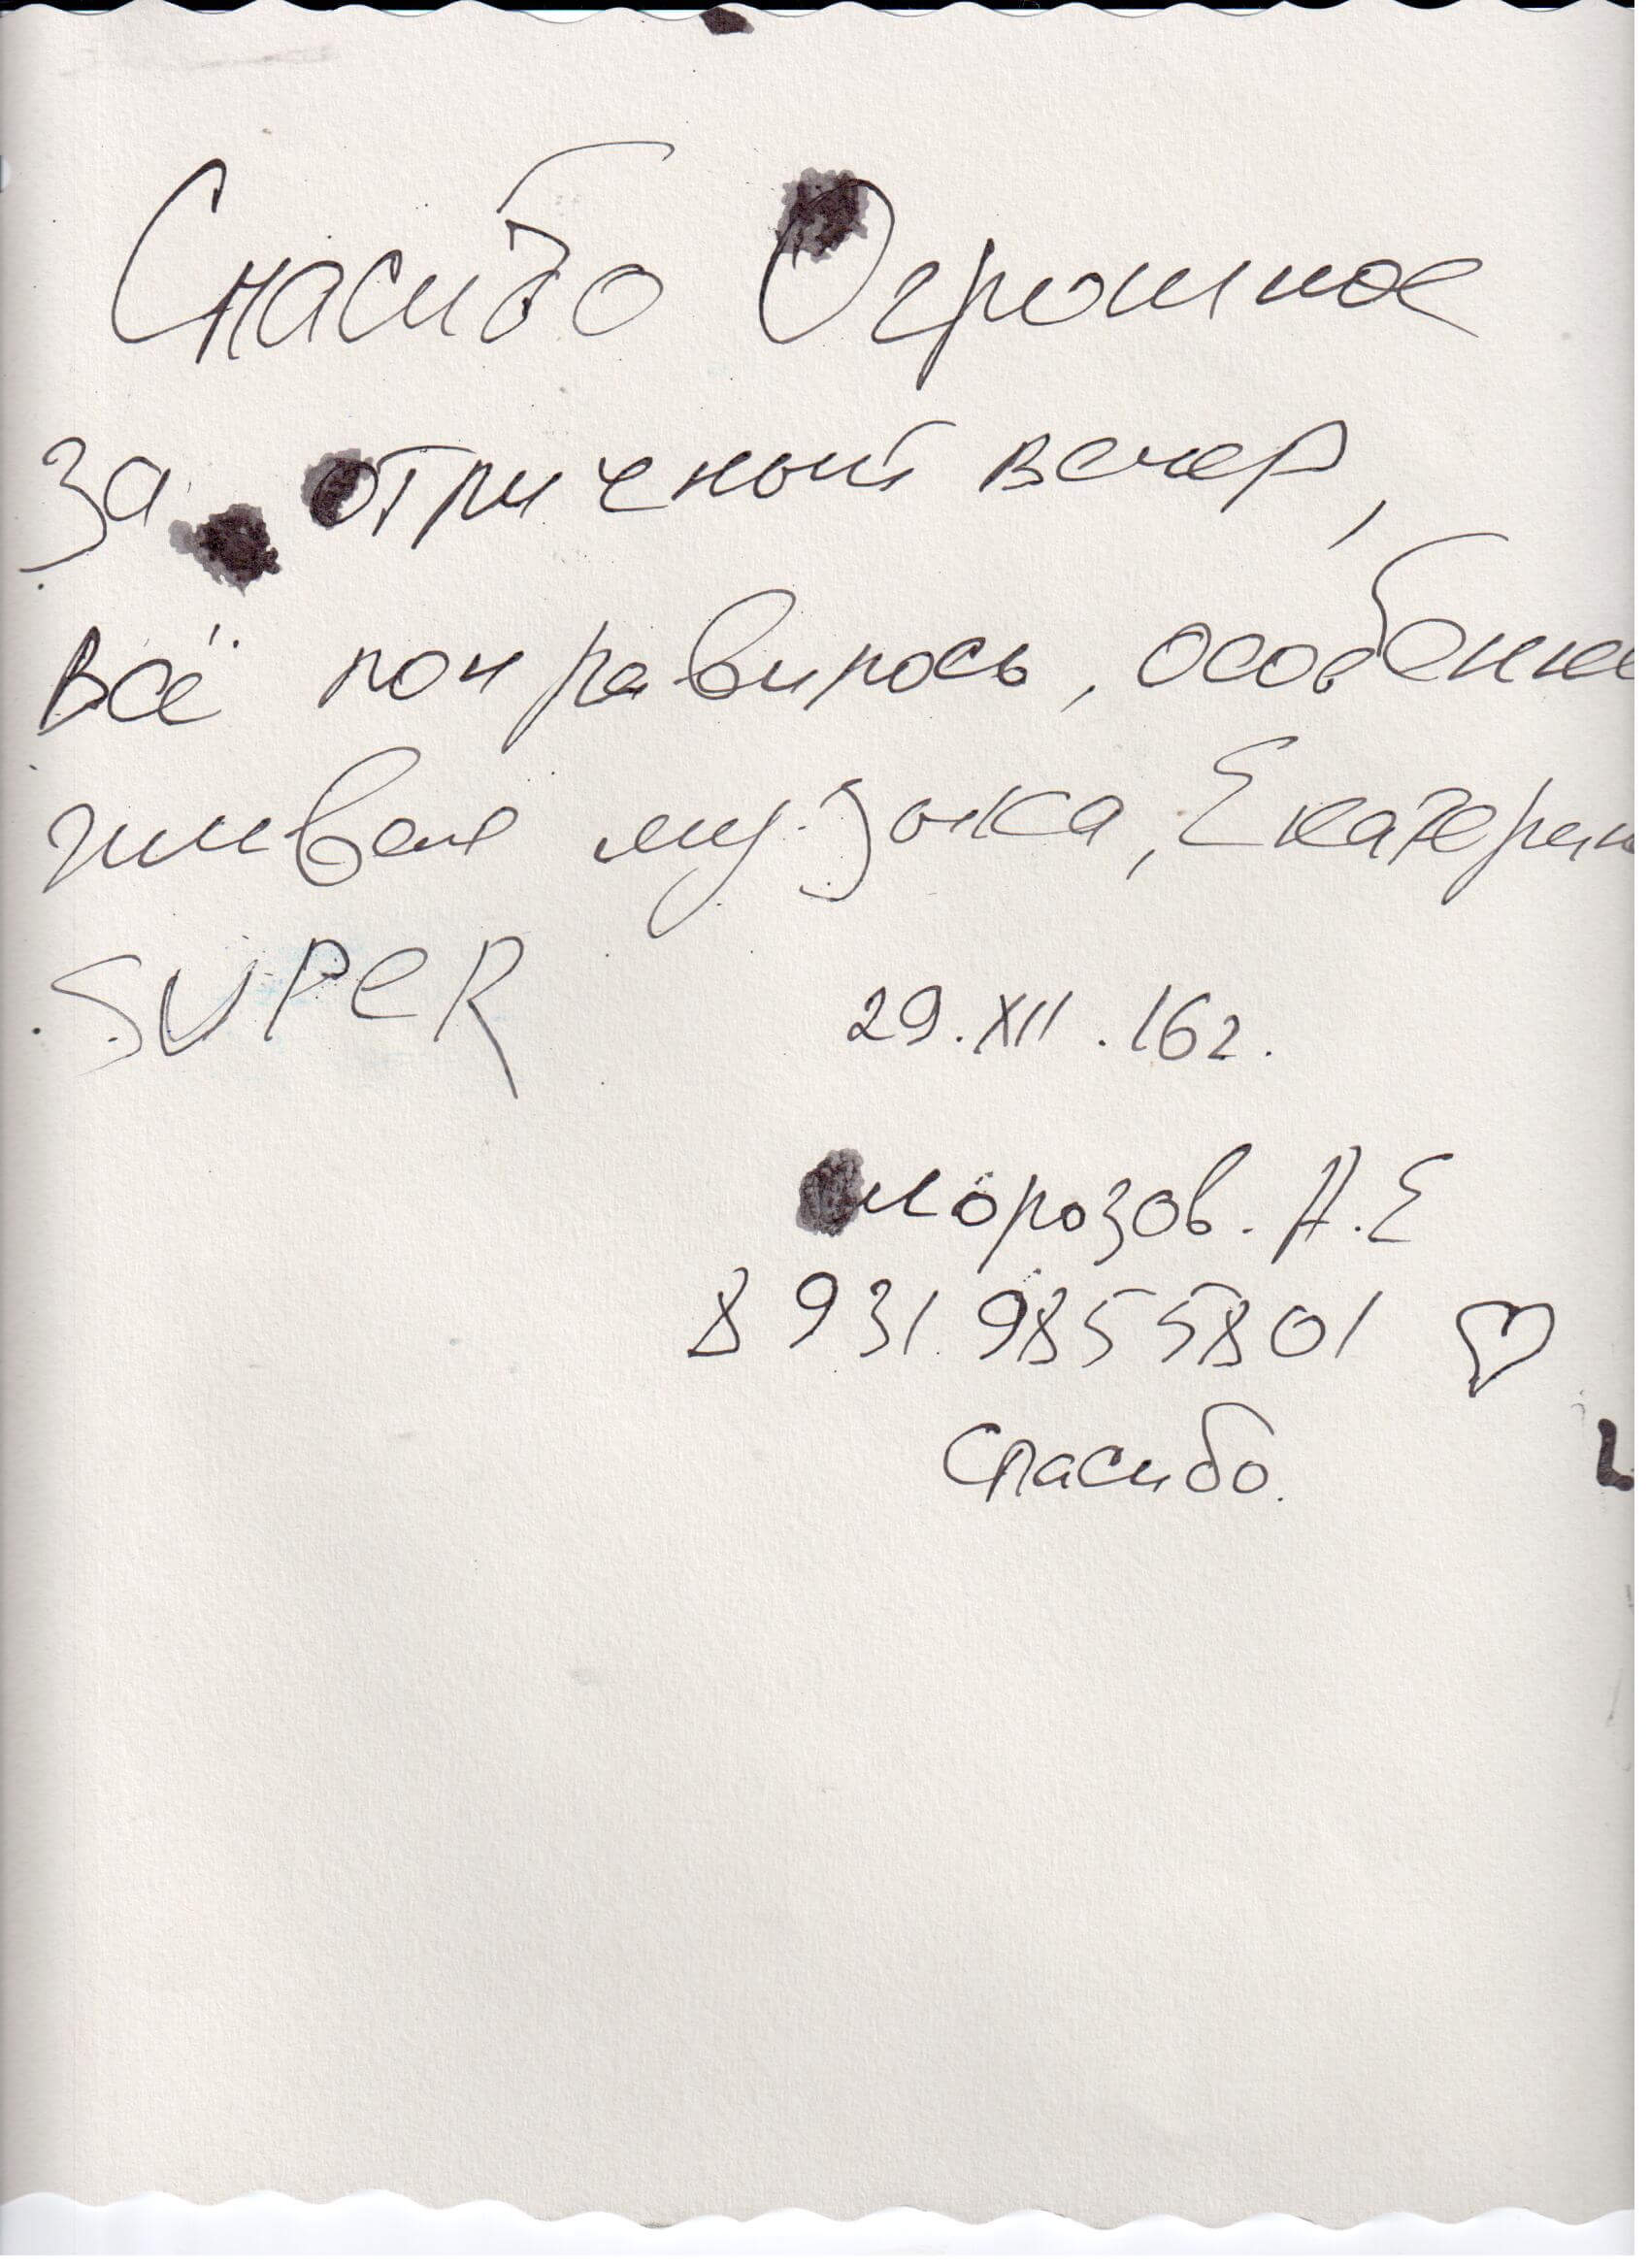 Спасибо Огромное
за отличный вечер,
всё понравилось, особенно
живая музыка, Екатерин
SUPER
29.XII.16г.
Морозов. А.Е
8 931 9855801 ♡
Спасибо.